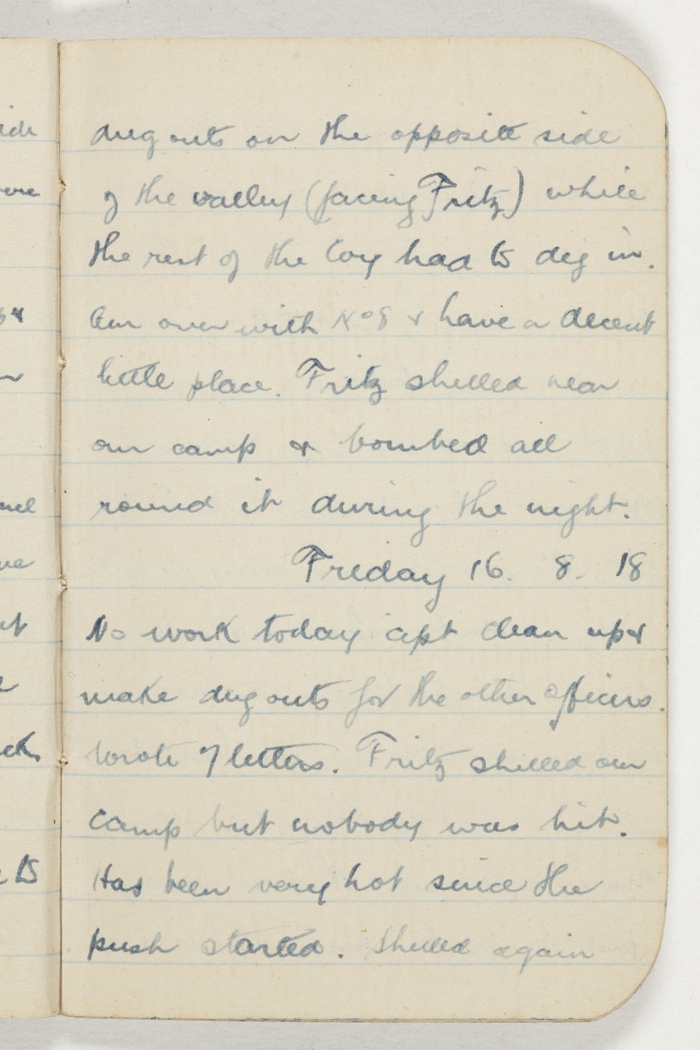 dug outs on the opposite side
of the valley (facing Fritz) while
the rest of the Coy had to dig in.
Am over with No 8 & have a decent
little place. Fritz shelled near
our camp & bombed all
round it during the night.
Friday 16. 8. 18
No work today cept clean up &
make dug outs for the other officers.
Wrote 7 letters. Fritz shelled our
camp but nobody was hit.
Has been very hot since the
push started. Shelled again